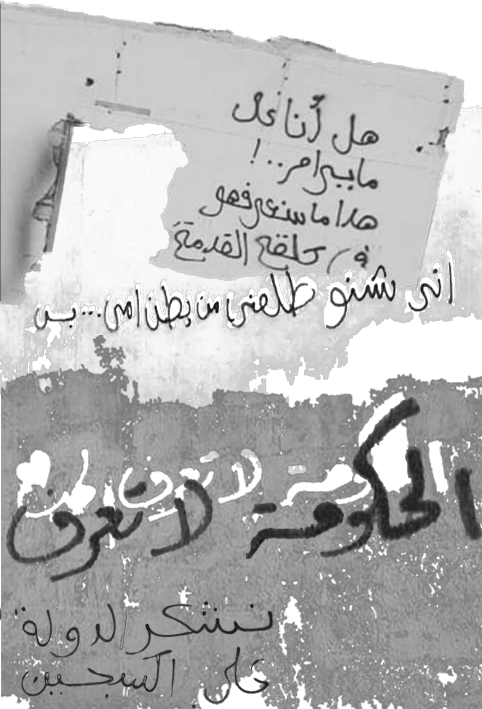 هل أنا على
ما يرامر..!
هدا ما سنعرفهو
في حلقة القدمة
اني شنو طلعني من بطن امي...بس
الحكومة لا تعرف
الحكومة لا تعرف
نشكر الدولة
على السجين